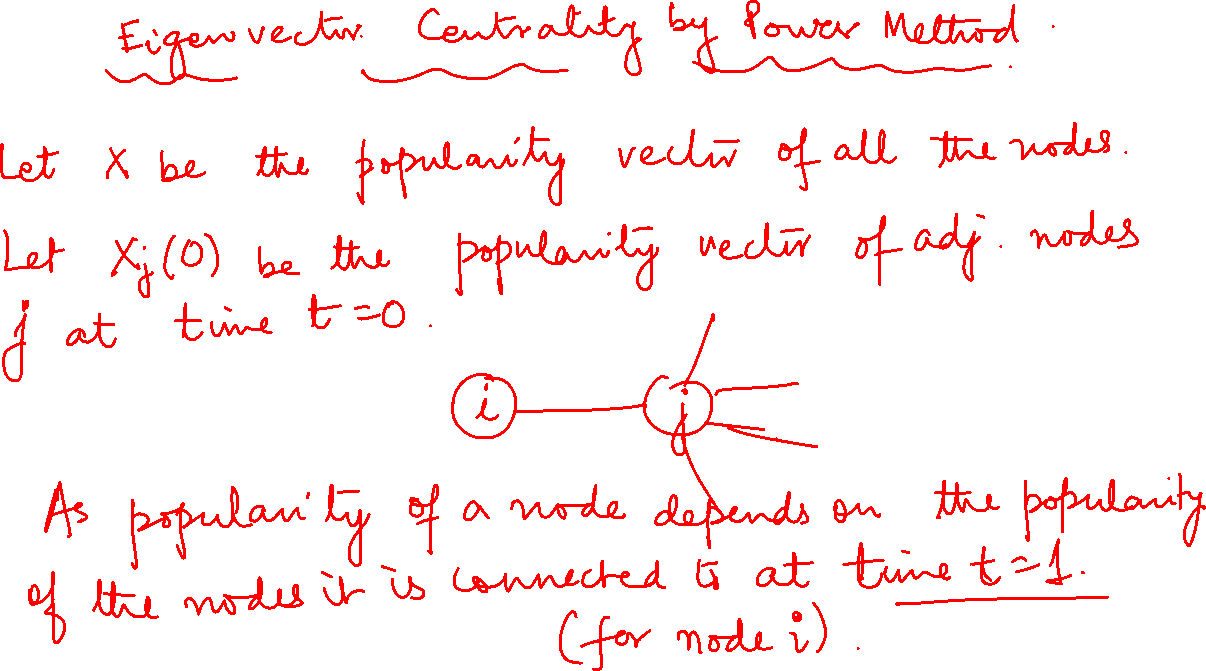 Eigenvector Centrality by Power Method.
Let X be the popularity vector of all the nodes.
Let Xj(0) be the popularity vector of adj. nodes
j at time t=0.
i j
As popularity of a node depends on the popularity
of the nodes it is connected to at time t=1.
(for node i).